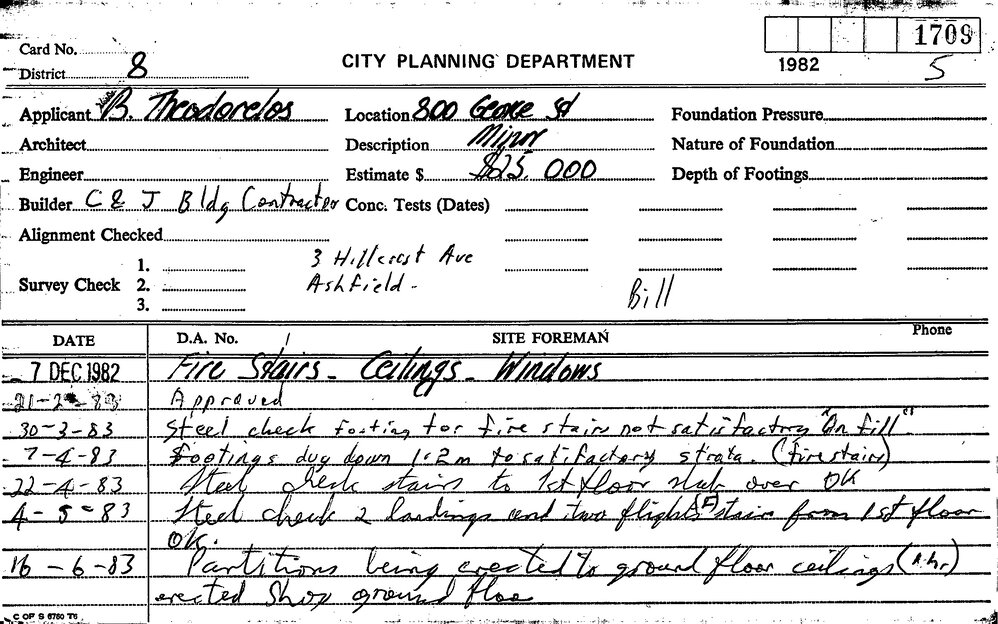 1709
Card No.
District 8
CITY PLANNING DEPARTMENT
1982
5
Applicant B. Theodorelos
Location 800 George St
Foundation Pressure
Architect
Description Minor
Nature of Foundation
Engineer
Estimate $ $25,000
Depth of Footings
Builder C & J Bldg Contractor
Conc. Tests (Dates)
Alignment Checked
3 Hillcrest Ave
Ashfield -
Survey Check
1.
2.
3.
Bill
DATE
D.A. No.
SITE FOREMAN
Phone
7 DEC 1982 Fire Stairs - Ceilings - Windows
21-2-83 Approved
30-3-83 Steel check footing for fire stairs not satisfactory "On fill"
7-4-83 Footings dug down 1.2m to satisfactory strata. (fire stairs)
22-4-83 Steel check stairs to 1st floor slab over OK
4-5-83 Steel check 2 landings and two flights of stair from 1st floor
OK.
16-6-83 Partitions being erected to ground floor ceilings
erected Shop ground floor
C OF S 6760 T6